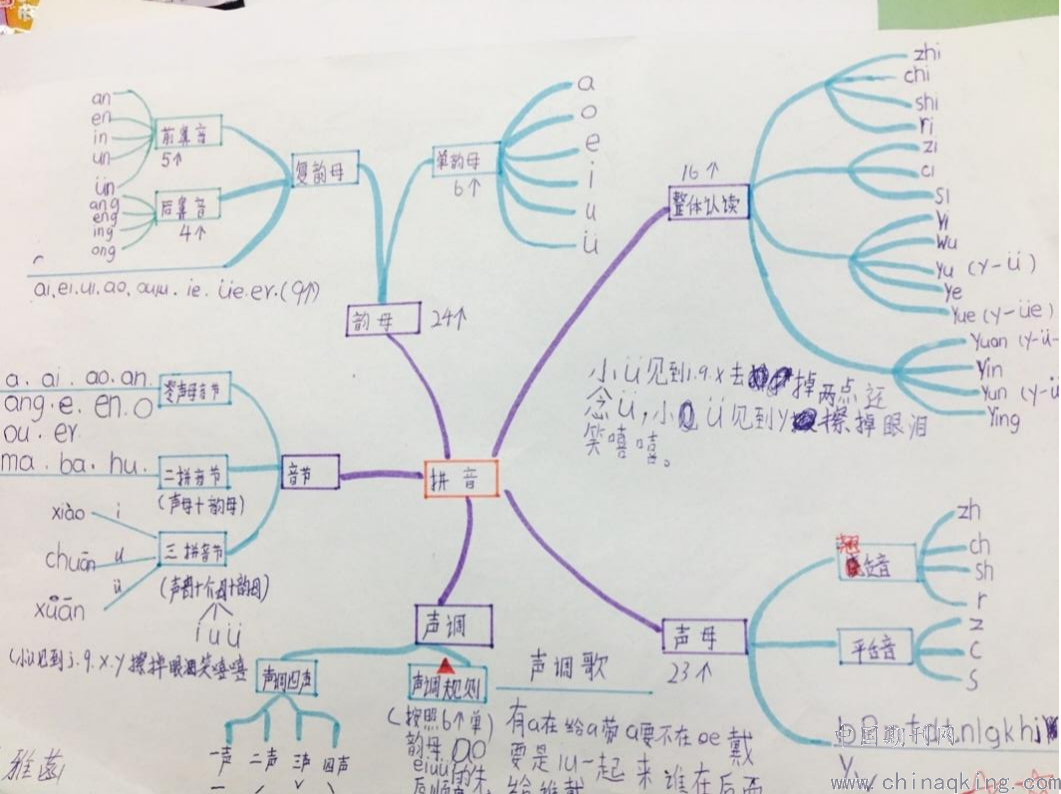 拼音
韵母 24个
单韵母
6个
a
o
e
i
u
ü
复韵母
前鼻音
5个
an
en
in
un
ün
后鼻音
4个
ang
eng
ing
ong
ai.ei.ui.ao.ou.iu.ie.üe.er.(9个)
整体认读
16个
zhi
chi
shi
ri
zi
ci
si
yi
wu
yu (y-ü)
ye
yue (y-üe)
yuan (y-ü-
yin
yun (y-ü
ying
小ü见到j.q.x去掉两点还
念ü,小ü见到y擦掉眼泪
笑嘻嘻。
音节
零声母音节
a.ai.ao.an.
ang.e.en.o
ou.er
二拼音节
(声母+韵母)
ma.ba.hu.
三拼音节
(声母+介母+韵母)
i u ü
xiào i
chuān u
xuān ü
(小ü见到j.q.x.y擦掉眼泪笑嘻嘻
声调
声调四声
一声 二声 三声 四声
声调规则
(按照6个单
韵母
声调歌
有a在给a带a要不在oe戴
要是iu一起来谁在后面
给谁戴
声母
23个
zh
ch
sh
r
平舌音
z
c
s
雅
中国期刊网
www.chinaqking.com